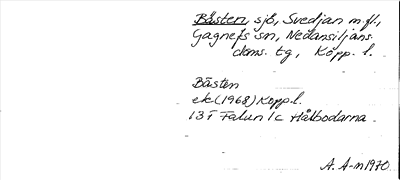 Bästen, sjö, Svedjan m.fl.,
Gagnefs sn, Nedansiljans
dms. tg, Kopp. l.
Bästen
ek (1968) Kopp.l.
13 F Falun 1c Hålbodarna.
A. A-m 1970